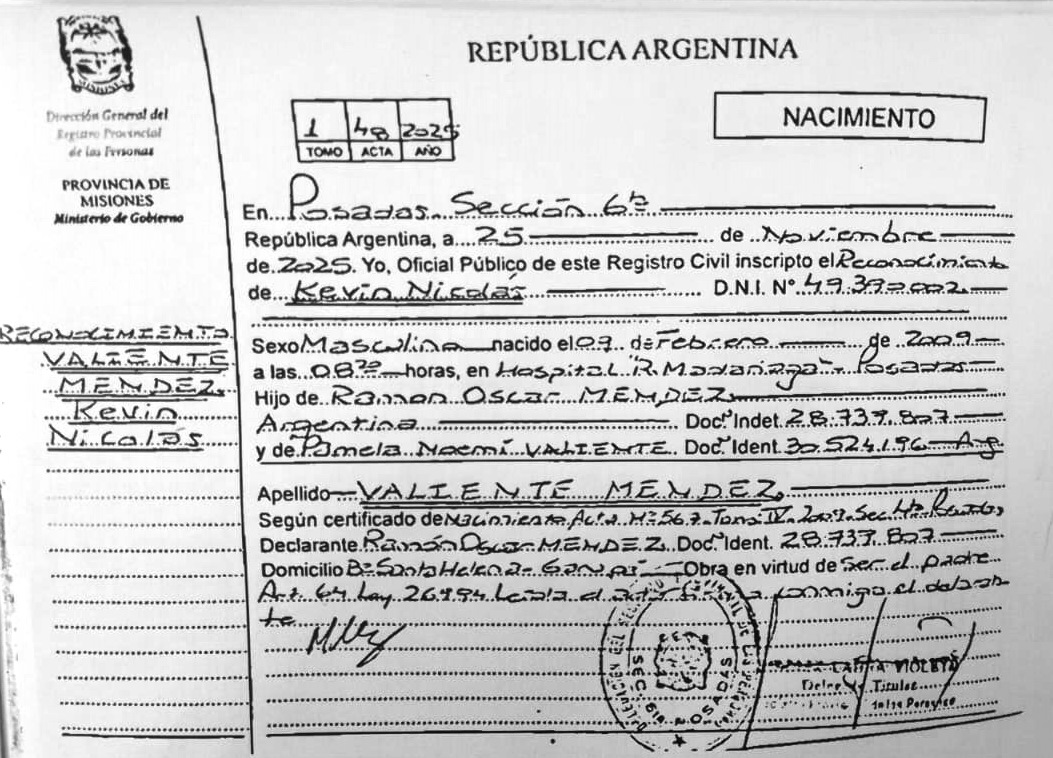 REPÚBLICA ARGENTINA
Dirección General del
Registro Provincial
de las Personas
PROVINCIA DE
MISIONES
Ministerio de Gobierno
1 48 2025
TOMO ACTA AÑO
NACIMIENTO
En Posadas Sección 6ta
República Argentina, a 25 de Noviembre
de 2025. Yo, Oficial Público de este Registro Civil inscripto el Reconocimiento
de Kevin Nicolás D.N.I. N° 49.390.002
RECONOCIMIENTO
VALIENTE
MENDEZ,
Kevin
Nicolás
Sexo Masculino nacido el 09 de Febrero de 2009
a las 08 horas, en Hospital R. Madariaga - Posadas
Hijo de Ramon Oscar MENDEZ,
Argentina Doc. Indet. 28.737.807
y de Pamela Noemí VALIENTE Doc. Ident. 30.524.196 - Arg
Apellido VALIENTE MENDEZ,
Según certificado de Nacimiento Acta N° 567 Tomo IV. 2009. Sec. 4ta
Declarante Ramón Oscar MENDEZ. Doc. Ident. 28.737.807
Domicilio B° Santa Helena - Garupá Obra en virtud de Ser el padre
Art. 64 Ley 26994 Leída el acta firma conmigo el declaran
te
SEC. 6ta POSADAS
VIOLETA
Titular